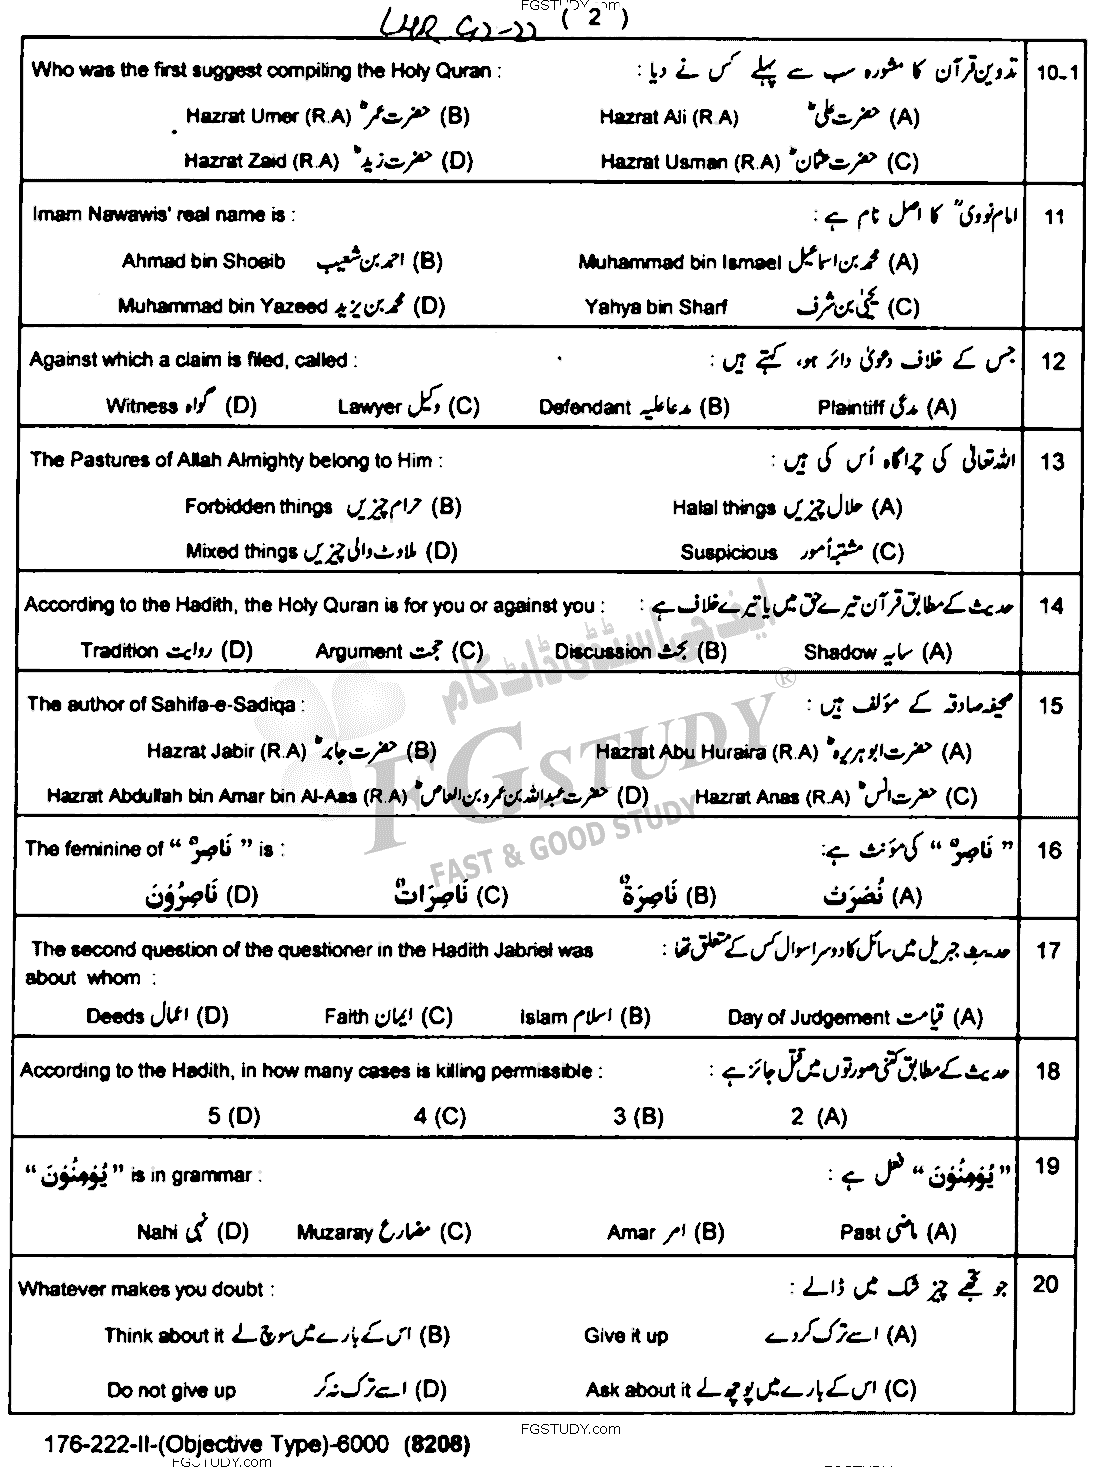 FGSTUDY.com
LHR G2-22 ( 2 )
Who was the first suggest compiling the Holy Quran : تدوین قرآن کا مشورہ سب سے پہلے کس نے دیا : 10-1
Hazrat Umer (R.A) حضرت عمرؓ (B) Hazrat Ali (R.A) حضرت علیؓ (A)
Hazrat Zaid (R.A) حضرت زیدؓ (D) Hazrat Usman (R.A) حضرت عثمانؓ (C)
Imam Nawawis' real name is : امام نوویؒ کا اصل نام ہے : 11
Ahmad bin Shoeib احمد بن شعیب (B) Muhammad bin Ismael محمد بن اسماعیل (A)
Muhammad bin Yazeed محمد بن یزید (D) Yahya bin Sharf یحییٰ بن شرف (C)
Against which a claim is filed, called : جس کے خلاف دعویٰ دائر ہو، کہتے ہیں : 12
Witness گواہ (D) Lawyer وکیل (C) Defendant مدعا علیہ (B) Plaintiff مدعی (A)
The Pastures of Allah Almighty belong to Him : اللہ تعالیٰ کی چراگاہ اُس کی ہیں : 13
Forbidden things حرام چیزیں (B) Halal things حلال چیزیں (A)
Mixed things ملاوٹ والی چیزیں (D) Suspicious مشتبہ اُمور (C)
According to the Hadith, the Holy Quran is for you or against you : حدیث کے مطابق قرآن تیرے حق میں یا تیرے خلاف ہے : 14
Tradition روایت (D) Argument حجت (C) Discussion بحث (B) Shadow سایہ (A)
The author of Sahifa-e-Sadiqa : صحیفہ صادقہ کے مؤلف ہیں : 15
Hazrat Jabir (R.A) حضرت جابرؓ (B) Hazrat Abu Huraira (R.A) حضرت ابوہریرہؓ (A)
Hazrat Abdullah bin Amar bin Al-Aas (R.A) حضرت عبداللہ بن عمرو بن العاصؓ (D) Hazrat Anas (R.A) حضرت انسؓ (C)
The feminine of “ نَاصِرٌ ” is : ” نَاصِرٌ “ کی مؤنث ہے: 16
نَاصِرُوْنَ (D) نَاصِرَاتٌ (C) نَاصِرَةٌ (B) نُصْرَتْ (A)
The second question of the questioner in the Hadith Jabriel was حدیثِ جبریل میں سائل کا دوسرا سوال کس کے متعلق تھا : 17
about whom :
Deeds اعمال (D) Faith ایمان (C) Islam اسلام (B) Day of Judgement قیامت (A)
According to the Hadith, in how many cases is killing permissible : حدیث کے مطابق کتنی صورتوں میں قتل جائز ہے : 18
5 (D) 4 (C) 3 (B) 2 (A)
“ یُؤْمِنُوْنَ ” is in grammar : ” یُؤْمِنُوْنَ “ فعل ہے : 19
Nahi نہی (D) Muzaray مضارع (C) Amar امر (B) Past ماضی (A)
Whatever makes you doubt : جو تجھے چیز شک میں ڈالے : 20
Think about it اس کے بارے میں سوچ لے (B) Give it up اسے ترک کر دے (A)
Do not give up اسے ترک نہ کر (D) Ask about it اس کے بارے میں پوچھ لے (C)
ایف جی اسٹڈی ڈاٹ کام
FGSTUDY®
FAST & GOOD STUDY
176-222-II-(Objective Type)-6000 (8208)
FGSTUDY.com
FGSTUDY.com